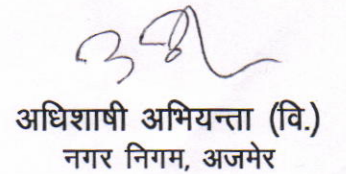 अधिशाषी अभियन्ता (वि.)
नगर निगम, अजमेर